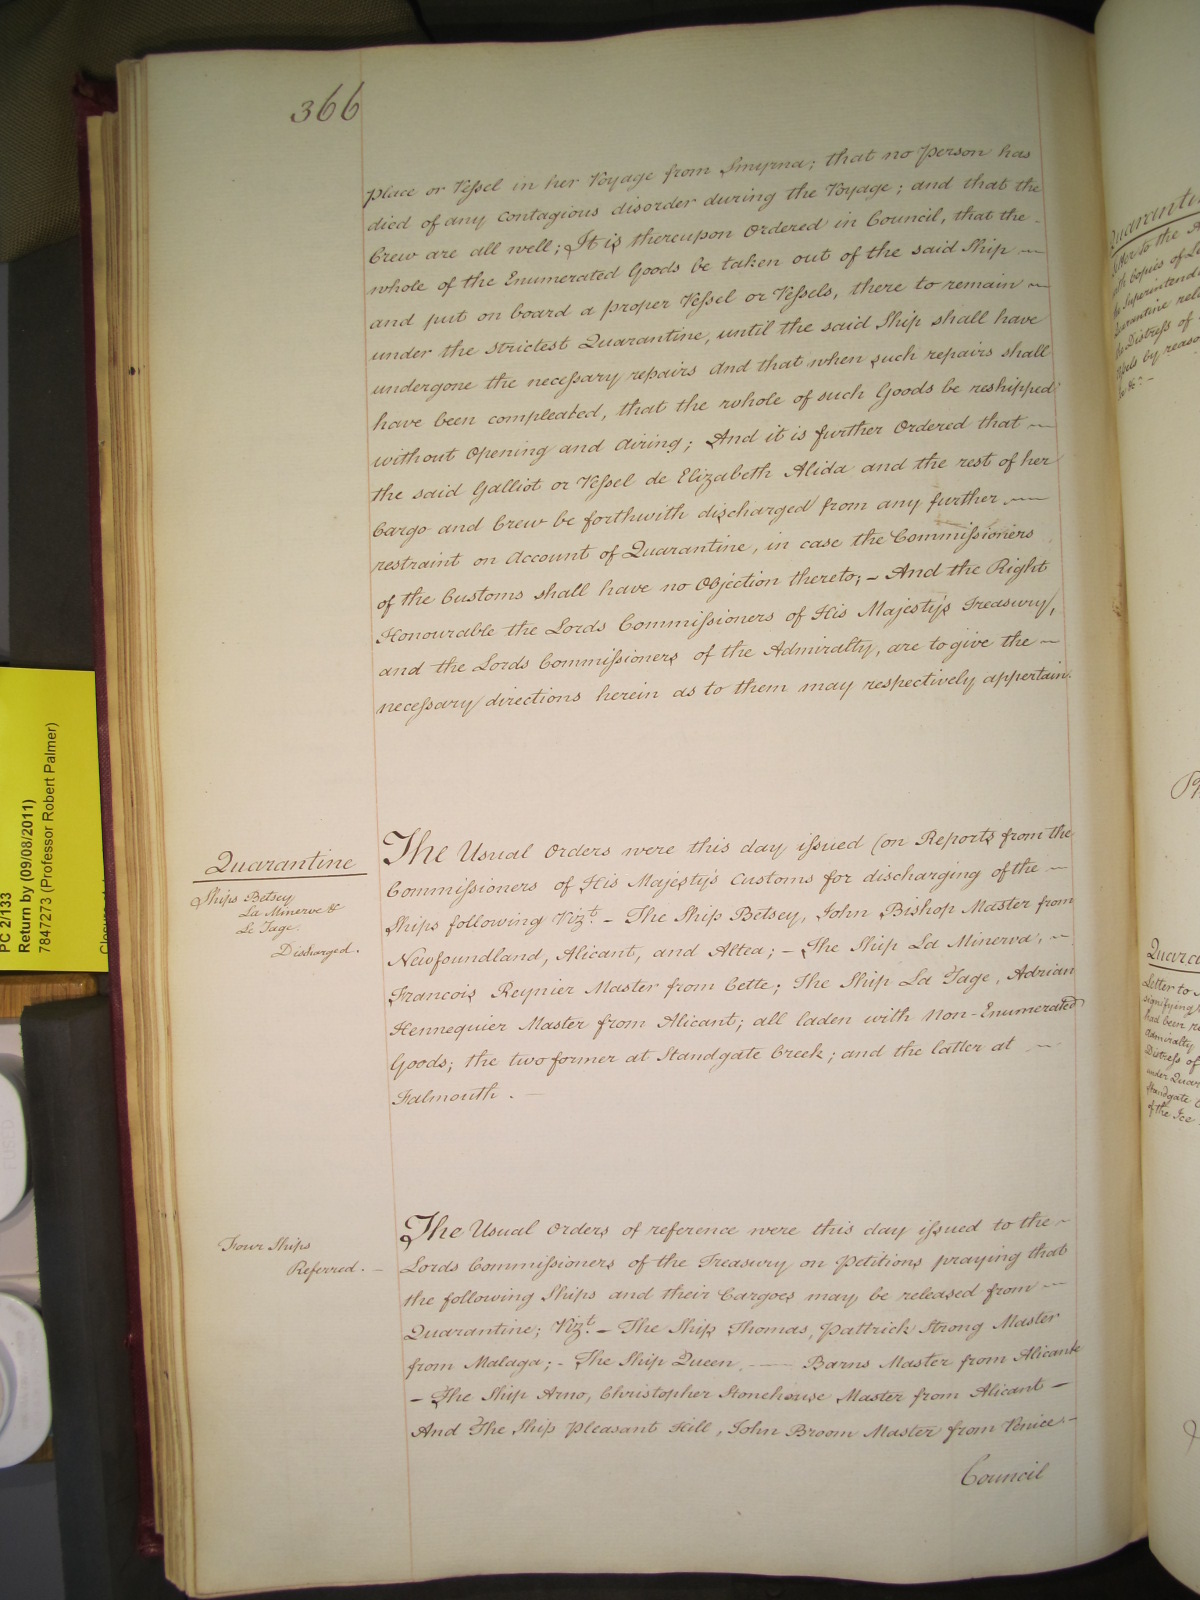 366
place or Vessel in her Voyage from Smyrna; that no Person has
died of any contagious disorder during the Voyage; and that the
Crew are all well; It is thereupon Ordered in Council, that the -
whole of the Enumerated Goods be taken out of the said Ship —
and put on board a proper Vessel or Vessels, there to remain —
under the strictest Quarantine, until the said Ship shall have
undergone the necessary repairs and that when such repairs shall
have been compleated, that the whole of such Goods be reshipped
without Opening and Airing; And it is further Ordered that —
the said Galliot or Vessel de Elizabeth Alida and the rest of her
Cargo and Crew be forthwith discharged from any further —
restraint on Account of Quarantine, in case the Commissioners
of the Customs shall have no Objection thereto; - And the Right
Honourable the Lords Commissioners of His Majesty's Treasury,
and the Lords Commissioners of the Admiralty, are to give the —
necessary directions herein as to them may respectively appertain.
Quarantine
Ships Betsey
La Minerve &
Le Tage.
Discharged.
The Usual Orders were this day issued (on Reports from the
Commissioners of His Majesty's Customs for discharging of the —
Ships following Vizt. - The Ship Betsey, John Bishop Master from
Newfoundland, Alicant, and Altea; - The Ship La Minerva, —
Francois Reynier Master from Cette; The Ship La Tage, Adrian
Hennequier Master from Alicant; all laden with Non-Enumerated
Goods; the two former at Standgate Creek; and the latter at —
Falmouth. —
Four Ships
Referred. -
The Usual Orders of reference were this day issued to the -
Lords Commissioners of the Treasury on Petitions praying that
the following Ships and their Cargoes may be released from —
Quarantine; Vizt. - The Ship Thomas, Pattrick Strong Master
from Malaga; - The Ship Queen, —— Barns Master from Alicante
- The Ship Arno, Christopher Stonehouse Master from Alicant -
And The Ship Pleasant Hill, John Broom Master from Venice -
Council
PC 2/133
Return by (09/08/2011)
7847273 (Professor Robert Palmer)
Quarantine
Letter to the
with Copies of
Superintenda
Quarantine
Distress of
by reason
Letter to
signifying
had been
Admiralty
Distress of
under Quar
Standgate C
of the Ice